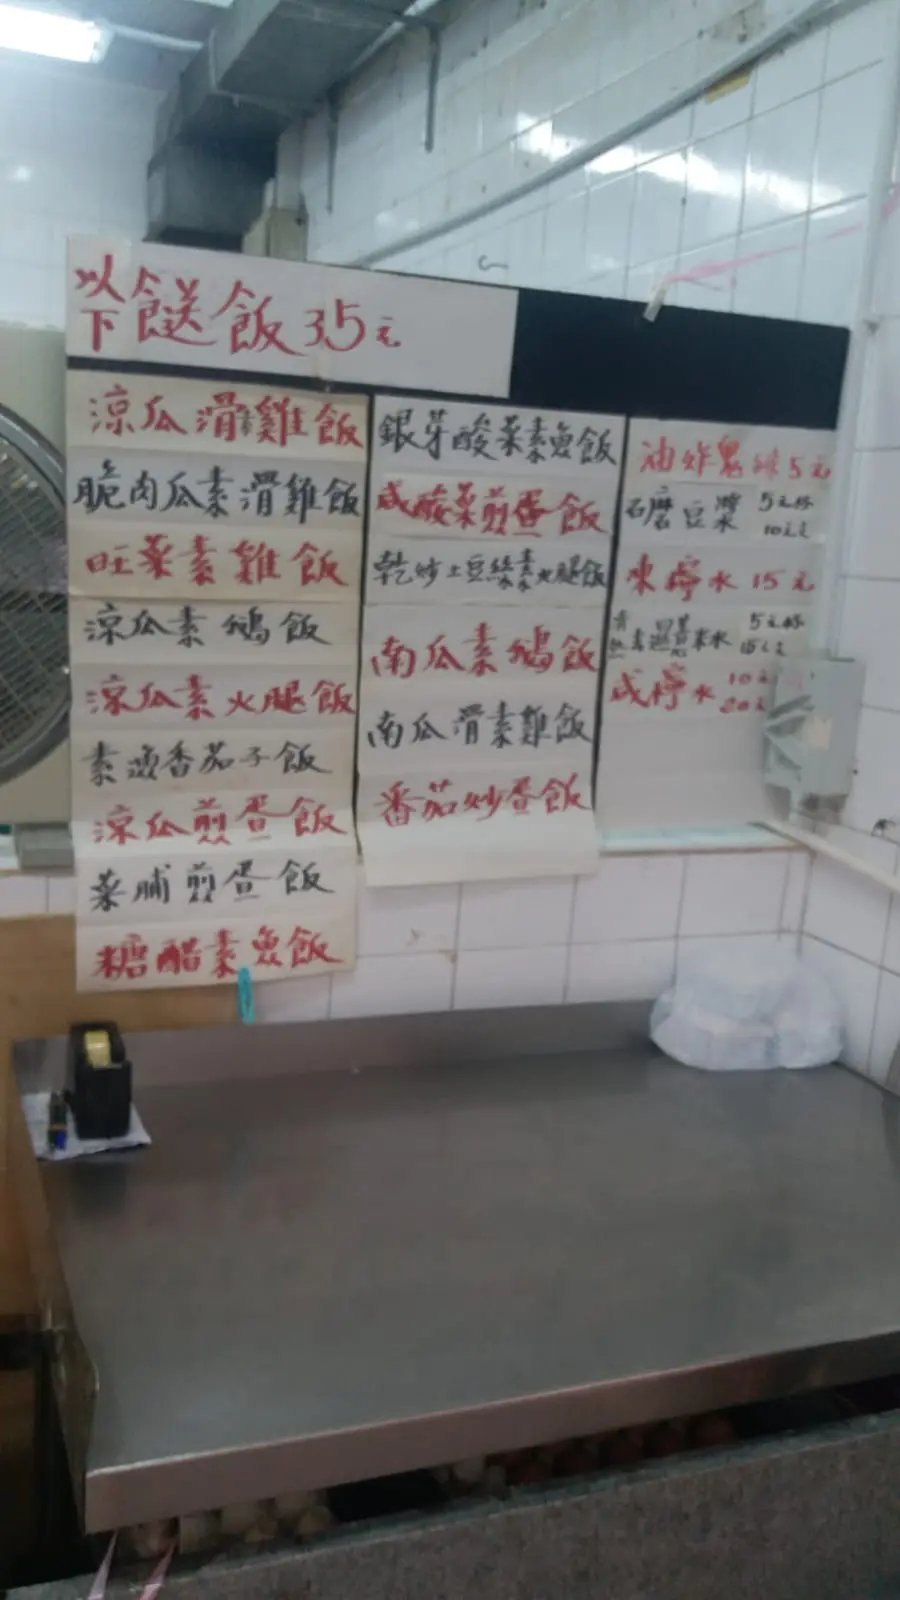 以下餸飯35元
涼瓜滑素雞飯
脆肉瓜素滑雞飯
旺菜素雞飯
涼瓜素鵝飯
涼瓜素火腿飯
素滷香茄子飯
涼瓜煎蛋飯
菜脯煎蛋飯
糖醋素魚飯
銀芽酸菜素魚飯
咸酸菜煎蛋飯
乾炒土豆絲素火腿飯
南瓜素鵝飯
南瓜滑素雞飯
番茄炒蛋飯
油炸鬼 5元
石磨豆漿 5元杯
10元支
凍檸水 15元
5元杯
15元支
咸檸水 10元
20元